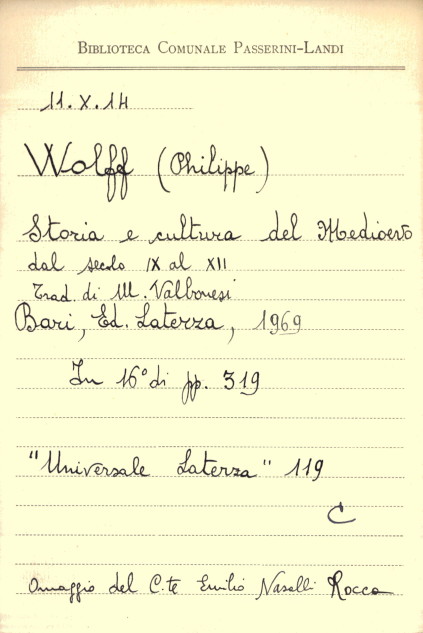 BIBLIOTECA COMUNALE PASSERINI-LANDI
11.X.14
Wolff (Philippe)
Storia e cultura del Medioevo
dal secolo IX al XII
Trad. di M. Valbonesi
Bari, Ed. Laterza, 1969
In 16° di pp. 319
"Universale Laterza" 119
C
Omaggio del C.te Emilio Nasalli Rocca